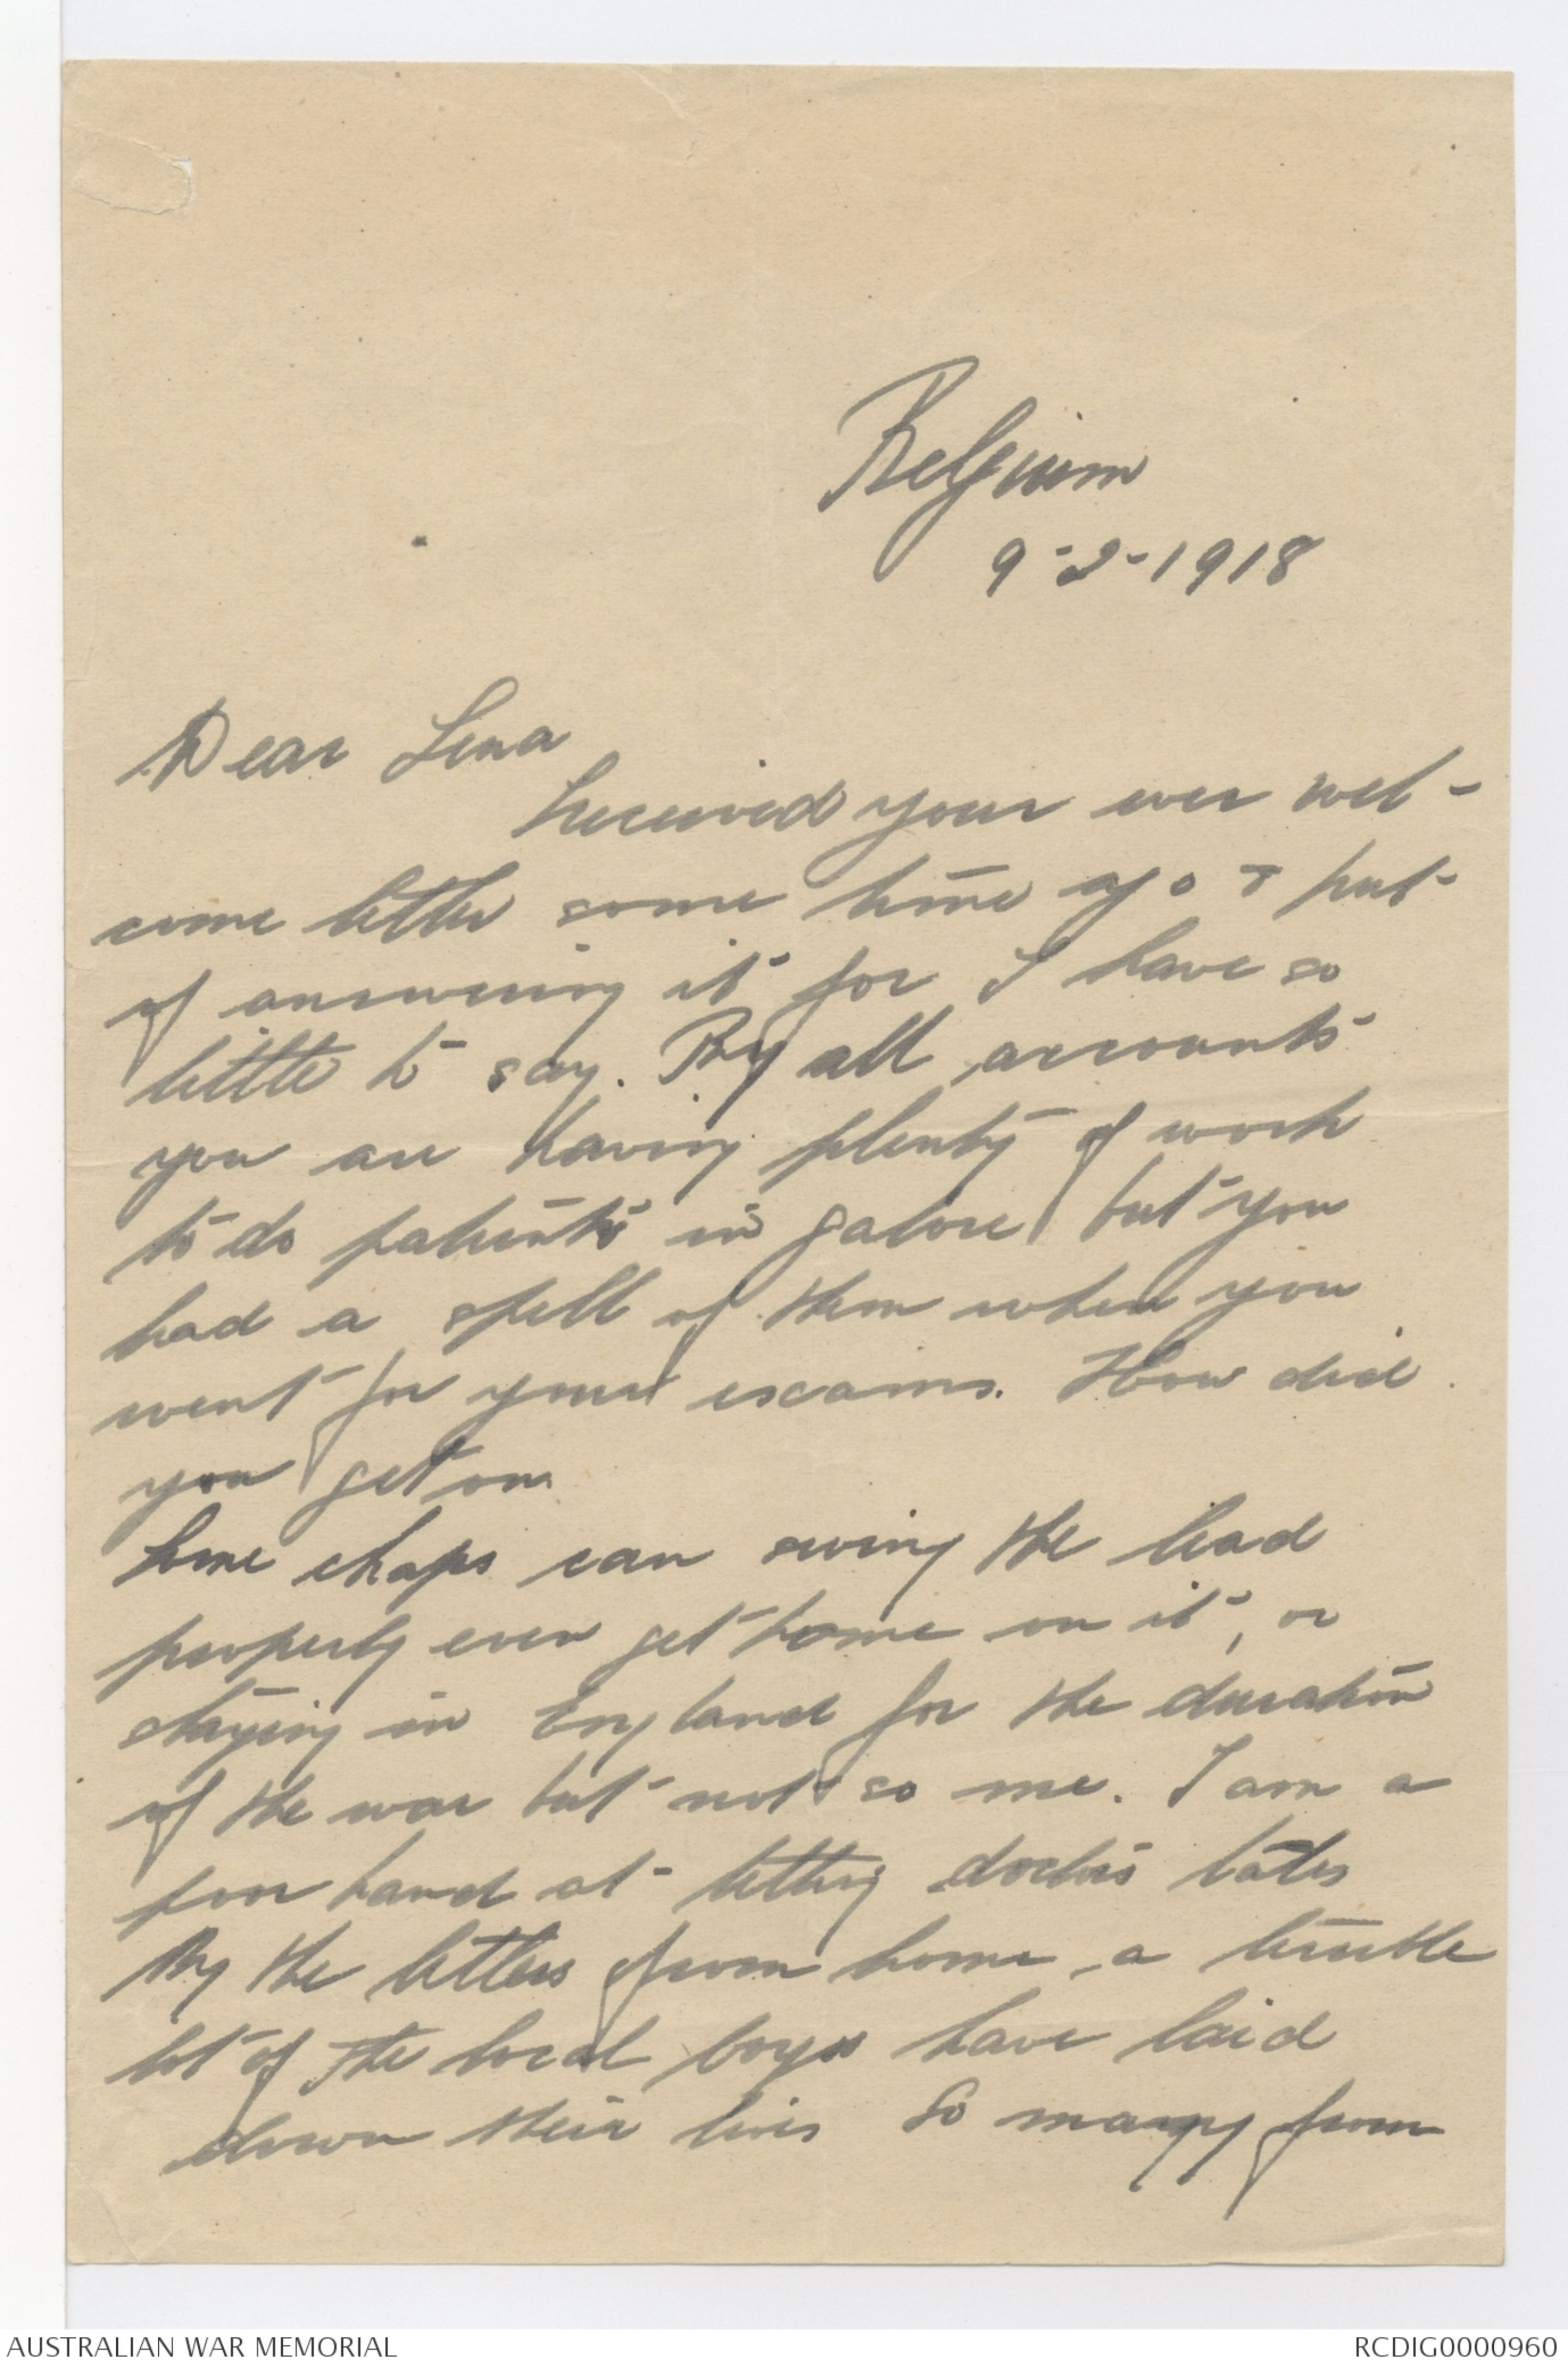 Belgium
9-2-1918
Dear Lena
Received your ever wel-
come letter some time ago & put
of answering it for I have so
little to say. By all accounts
you are having plenty of work
to do patients in galore but you
had a spell of them when you
went for your exams. How did
you get on
Some chaps can swing the lead
properly even get home on it, or
staying in England for the duration
of the war but not so me. I am a
poor hand at telling doctors tales
By the letters from home a terrible
lot of the local boys have laid
down their lives So many from
AUSTRALIAN WAR MEMORIAL
RCDIG0000960